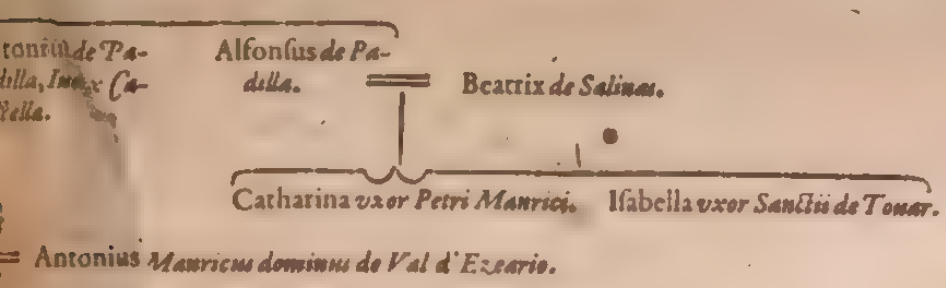 tonius de Pa-
dilla, Iudex Ca-
stella.
Alfonſus de Pa-
dilla.
Beatrix de Salinas.
Catharina vxor Petri Manrici. Iſabella vxor Sanctii de Touar.
Antonius Manricus dominus de Val d'Ezcario.